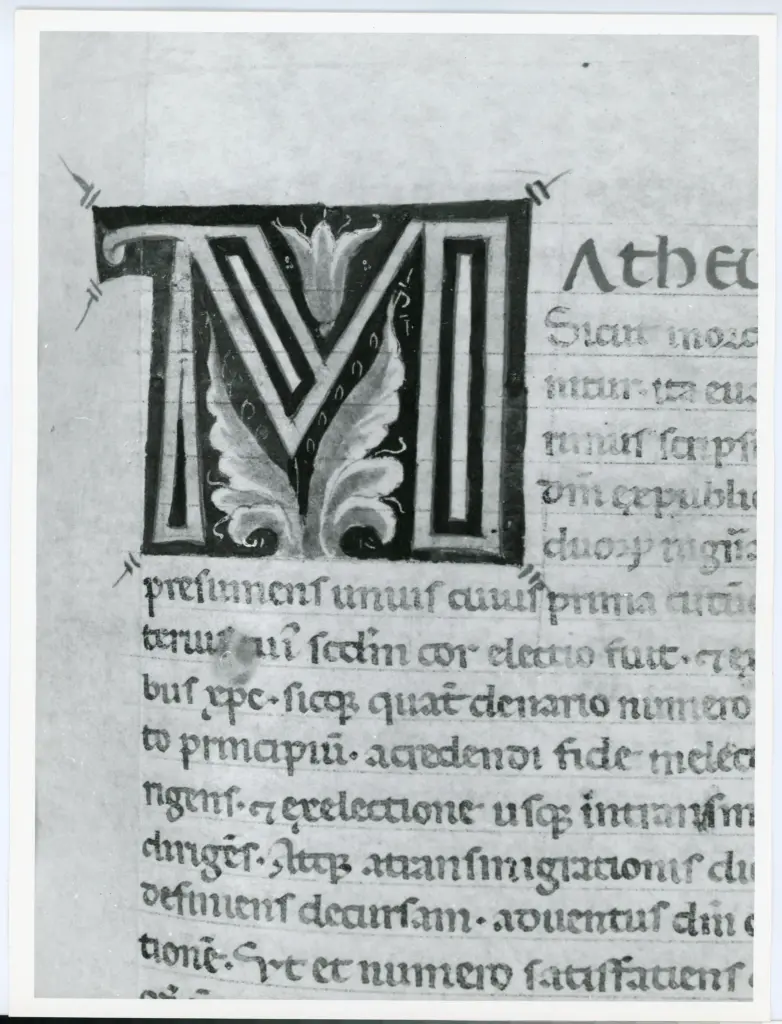 MATHEU
Sicut in orD
nitur· ita eua
rimus scripsi
dñi ex public
duorum in gñ
presumens unius cuius prima circũ
terius cui scdm cor electio fuit· ⁊ ex
bus xpc· sicq; quat denario numero
to principiũ· a credendi fide in elect
rigens· ⁊ ex electione usq; in transm
dirigẽs· Atq; a transmigrationis di
definiens decursam· aduentus dñi
tionẽ· Vt et numero satisfatiens